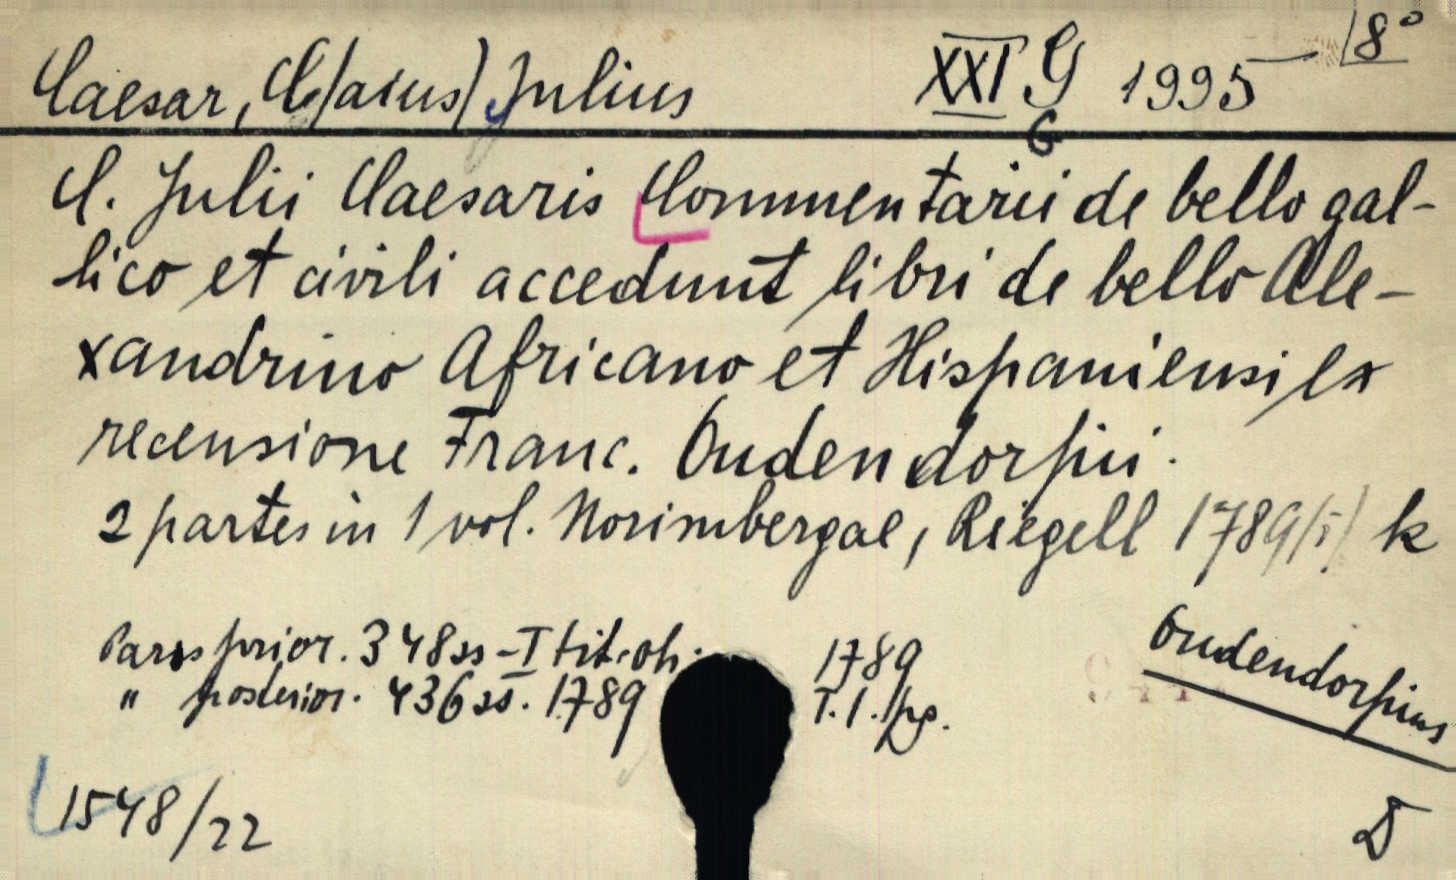 Caesar, C/aius/ Julius XXI G 1995 8°
G
C. Julii Caesaris Commentarii de bello gal-
lico et civili accedunt libri de bello Ale-
xandrino Africano et Hispaniensi ex
recensione Franc. Oudendorpii.
2 partes in 1 vol. Norimbergae, Riegell 1789/i/ k
Pars prior. 348 ss - I tit. 1789
" posterior. 436 ss. 1789 T. 1.
Oudendorpius
1548/22 D